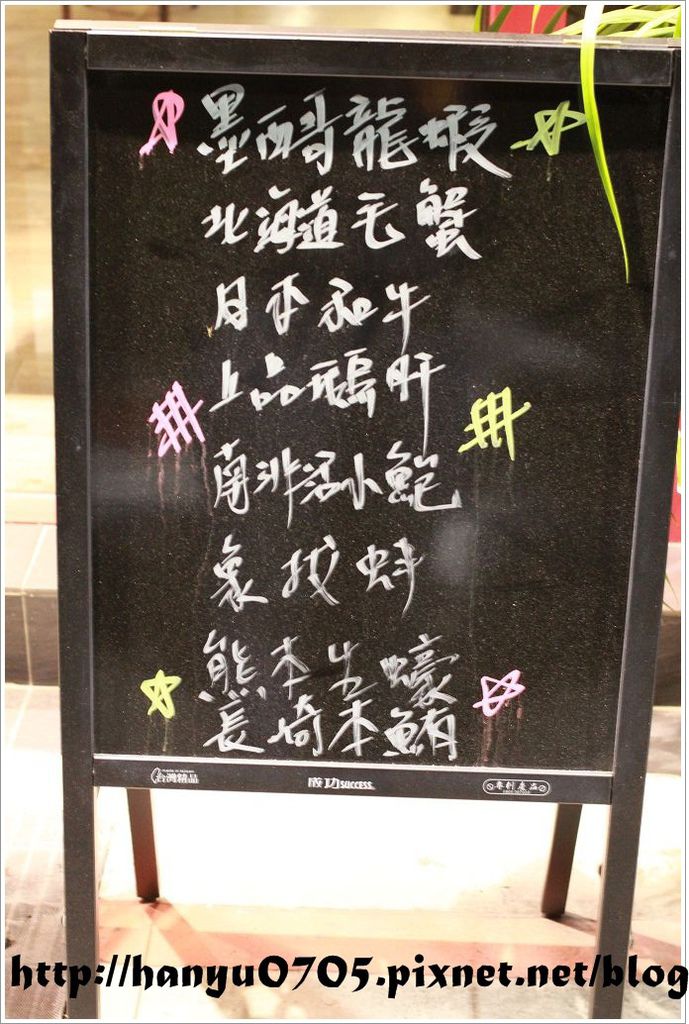 墨西哥龍蝦
北海道毛蟹
日本和牛
上品鵝肝
南非活小鮑
象拔蚌
熊本生蠔
長崎本鮪
台灣精品
成功 SUCCESS
專利產品
http://hanyu0705.pixnet.net/blog